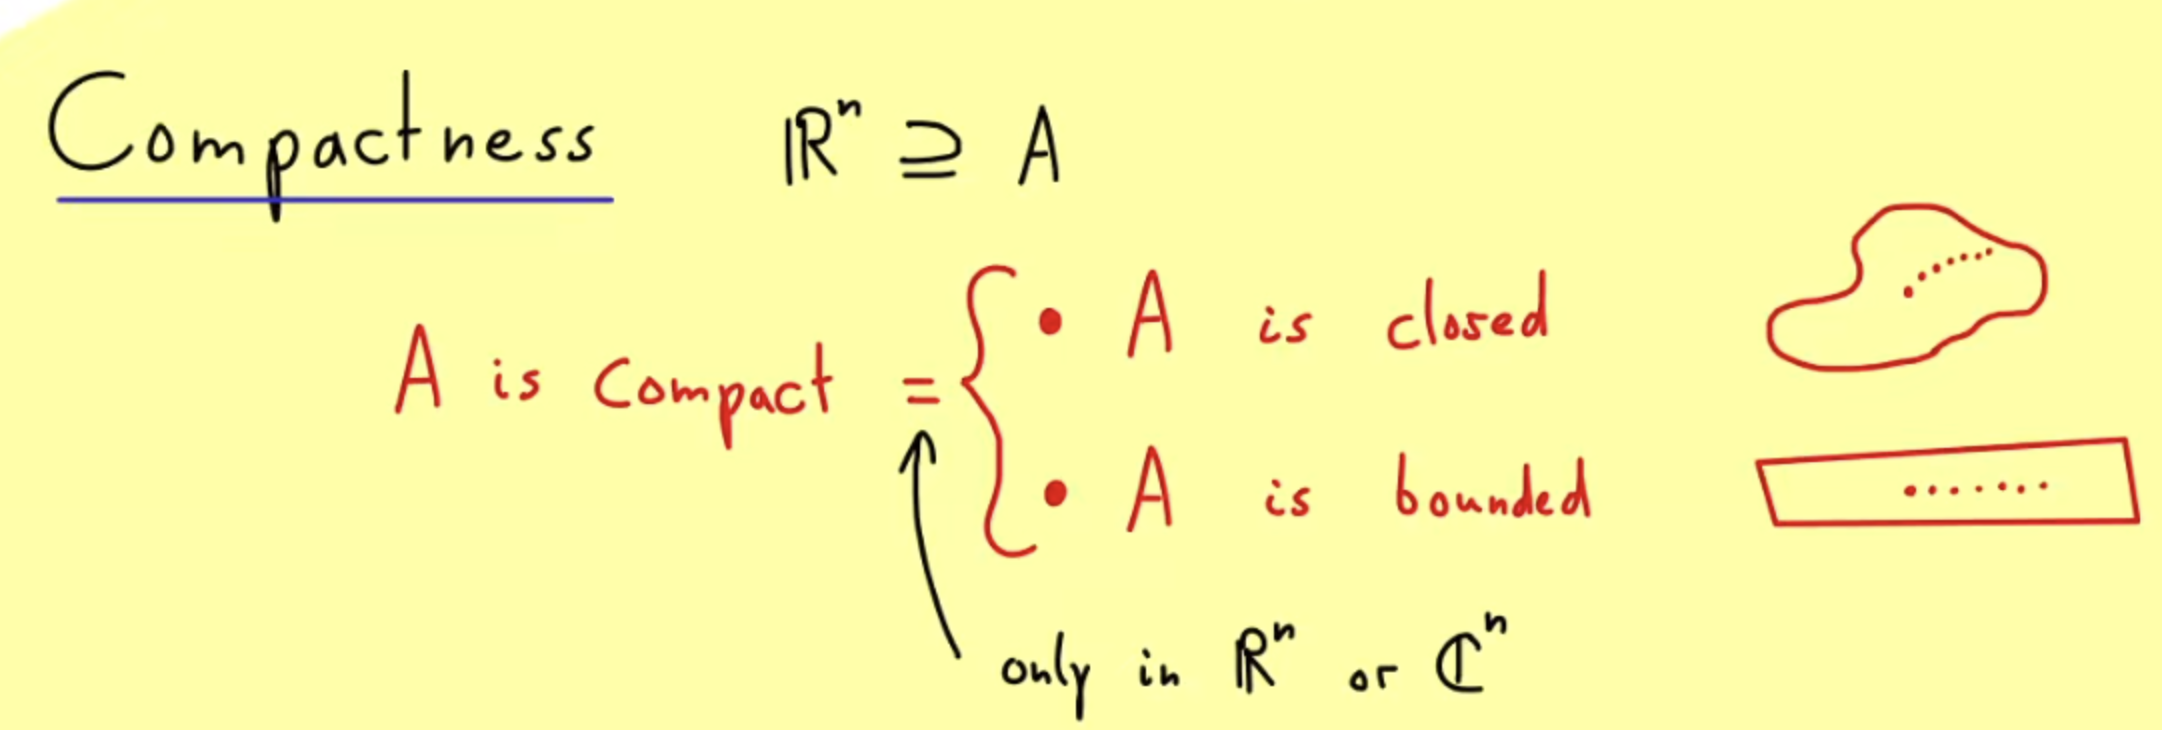 Compactness ℝⁿ ⊇ A
A is compact = { • A is closed
• A is bounded
only in ℝⁿ or ℂⁿ